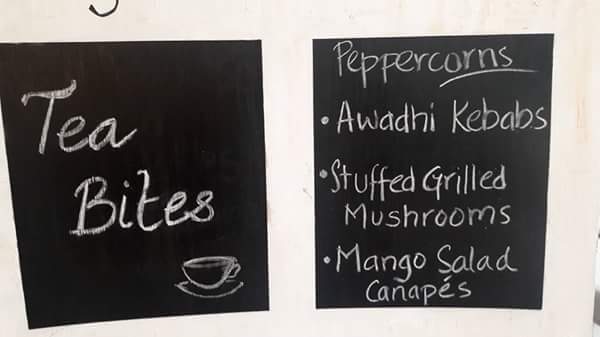 Tea
Bites
Peppercorns
• Awadhi Kebabs
• Stuffed Grilled
Mushrooms
• Mango Salad
Canapés